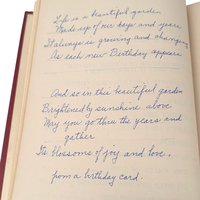 Life is a beautiful garden
Made up of our days and years
It always is growing and changing
As each new Birthday appears

And so in this beautiful garden
Brightened by sunshine above
May you go thru the years and
gather
Its blossoms of joy and love.
from a birthday card.